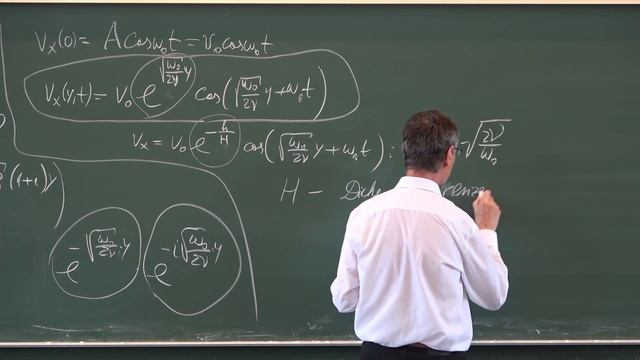 Vₓ(0) = A cosω₀t = V₀ cosω₀t
Vₓ(y,t) = V₀ e^(√(ω₀/2ν) y) cos(√(ω₀/2ν) y + ω₀t)
Vₓ = V₀ e^(-h/H) cos(√(ω₀/2ν) y + ω₀t) : √(2ν/ω₀)
(1+i)y
H –
e^(-√(ω₀/2ν) y) e^(-i√(ω₀/2ν) y)